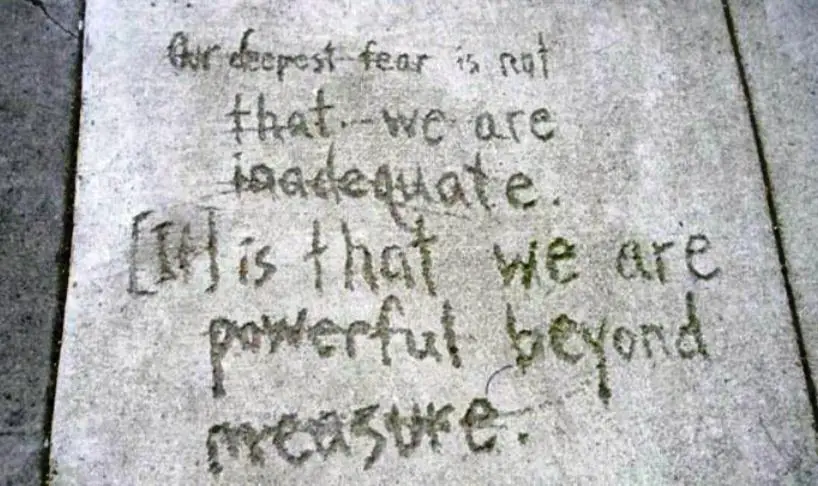 Our deepest fear is not
that we are
inadequate.
[It] is that we are
powerful beyond
measure.